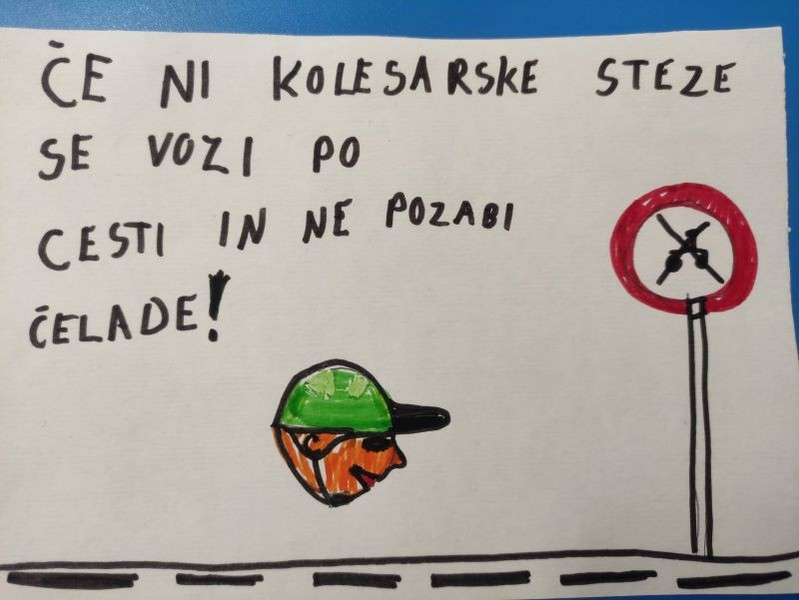 ČE NI KOLESARSKE STEZE
SE VOZI PO
CESTI IN NE POZABI
ČELADE!